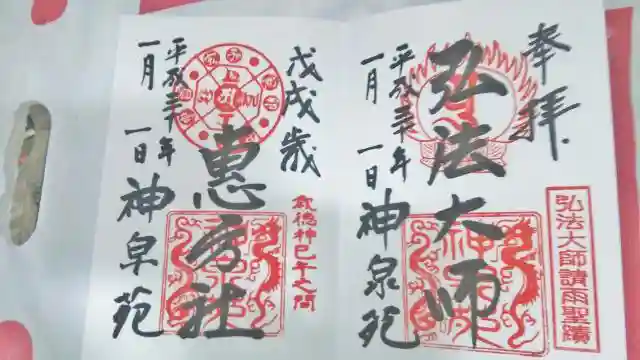 奉拝
弘法大師請雨聖蹟
弘法大師
平成三十年
一月一日
神泉苑
戊戌歳
歳徳神巳午之間
恵方社
平成三十年
一月一日
神泉苑